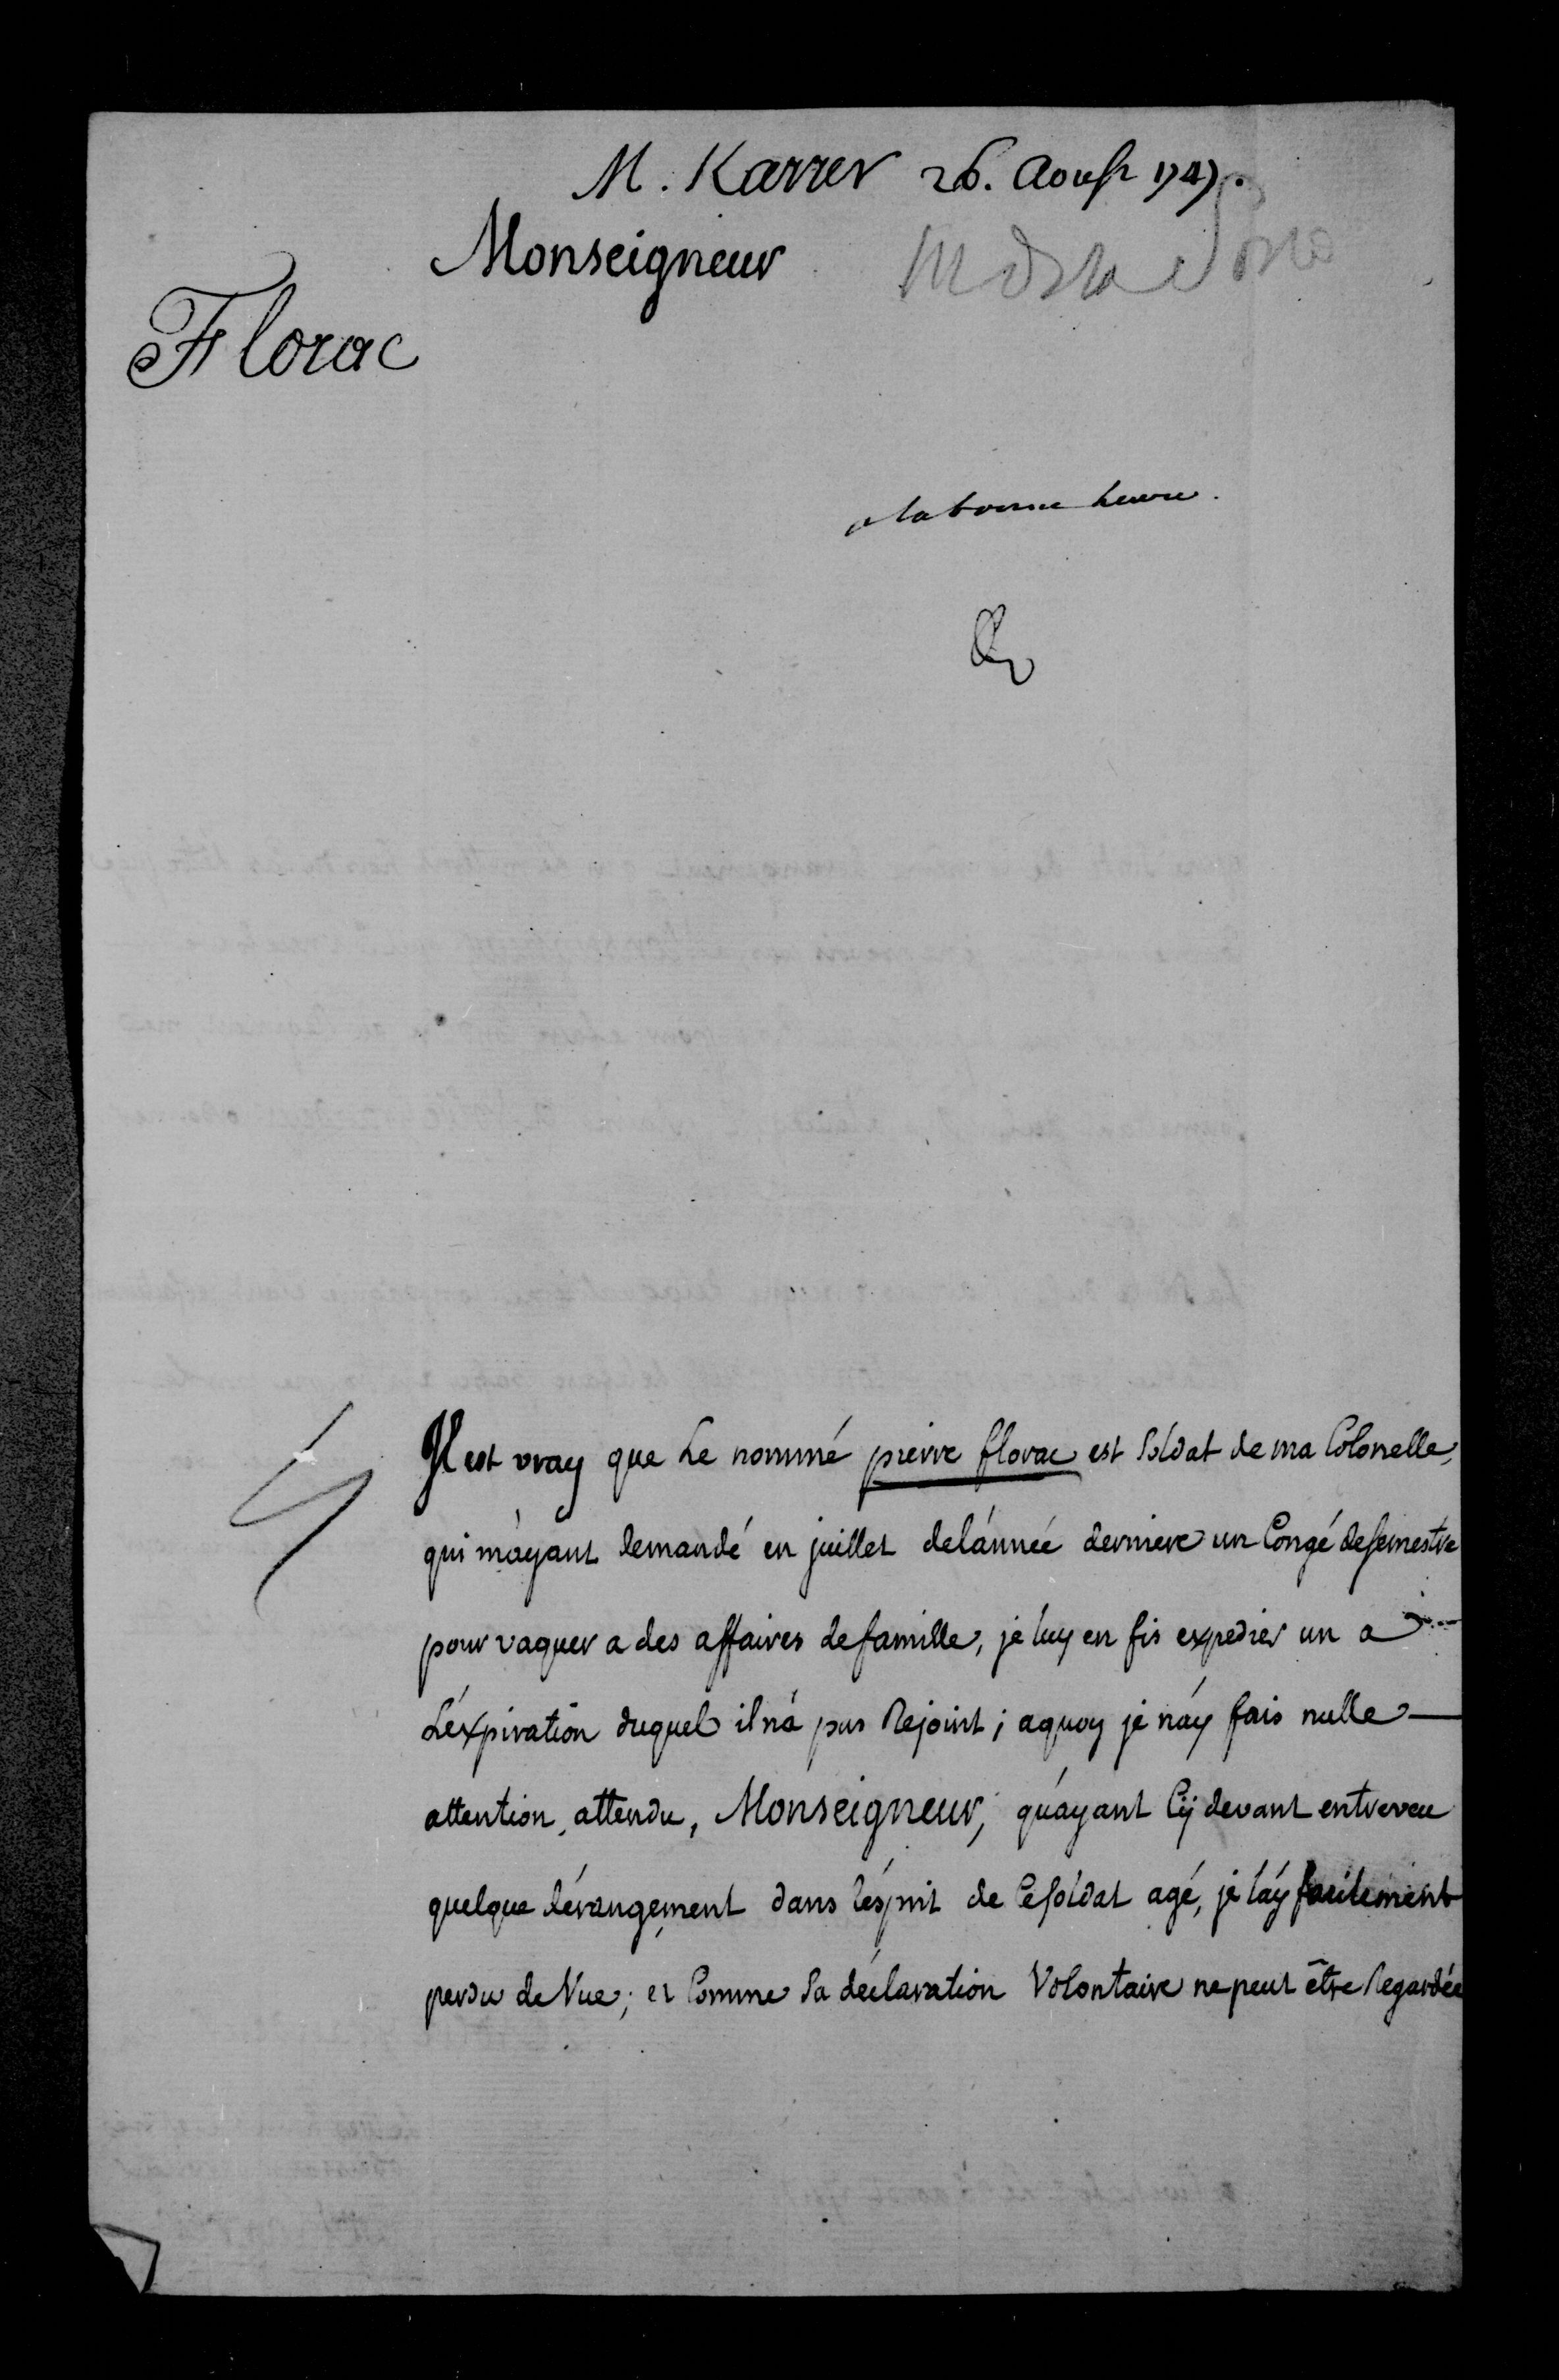 M. Karrer 26. Aoust 1747.
Monseigneur
Florac
a la bonne heure.
Il est vray que Le nommé pierre florac est Soldat de ma Colonelle,
qui m'ayant demandé en juillet de l'année derniere un Congé de semestre
pour vaquer a des affaires de famille, je luy en fis expedier un a
L'expiration duquel il n'a pas Rejoint; a quoy je n'ay fais nulle
attention, attendu, Monseigneur, qu'ayant Cÿ devant entreveu
quelque dérangement dans l'esprit de Ce soldat agé, je l'aÿ facilement
perdu de Vue; et Comme Sa déclaration Volontaire ne peut être Regardée